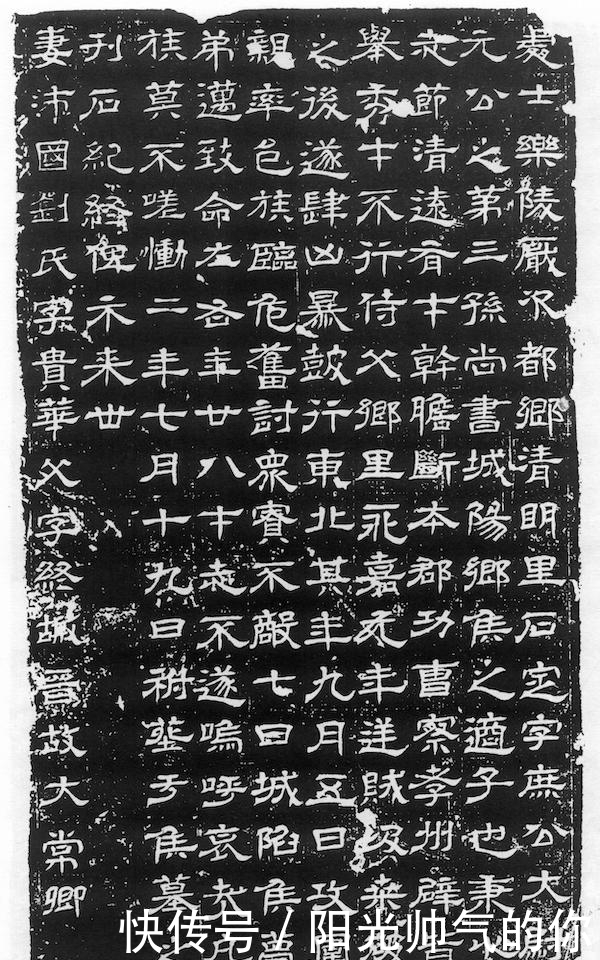 處士樂陵厭次都鄉清明里石定字庶公大
元公之第三孫尚書城陽鄉侯之適子也秉
節清遠有才幹膽斷本郡功曹察孝州辟
舉秀才不行侍父鄉里永嘉元年逆賊汲桑
之後遂肆凶暴鼓行東北其年九月五日攻圍
親率邑族臨危奮討眾寡不敵七日城陷侯
弟邁致命左右年廿八才志不遂嗚呼哀
族莫不嗟慟二年七月十九日祔葬于侯墓
刊石紀終俾示来世
妻沛國劉氏字貴華父字終嘏晉故大常卿
快传号/阳光帅气的你